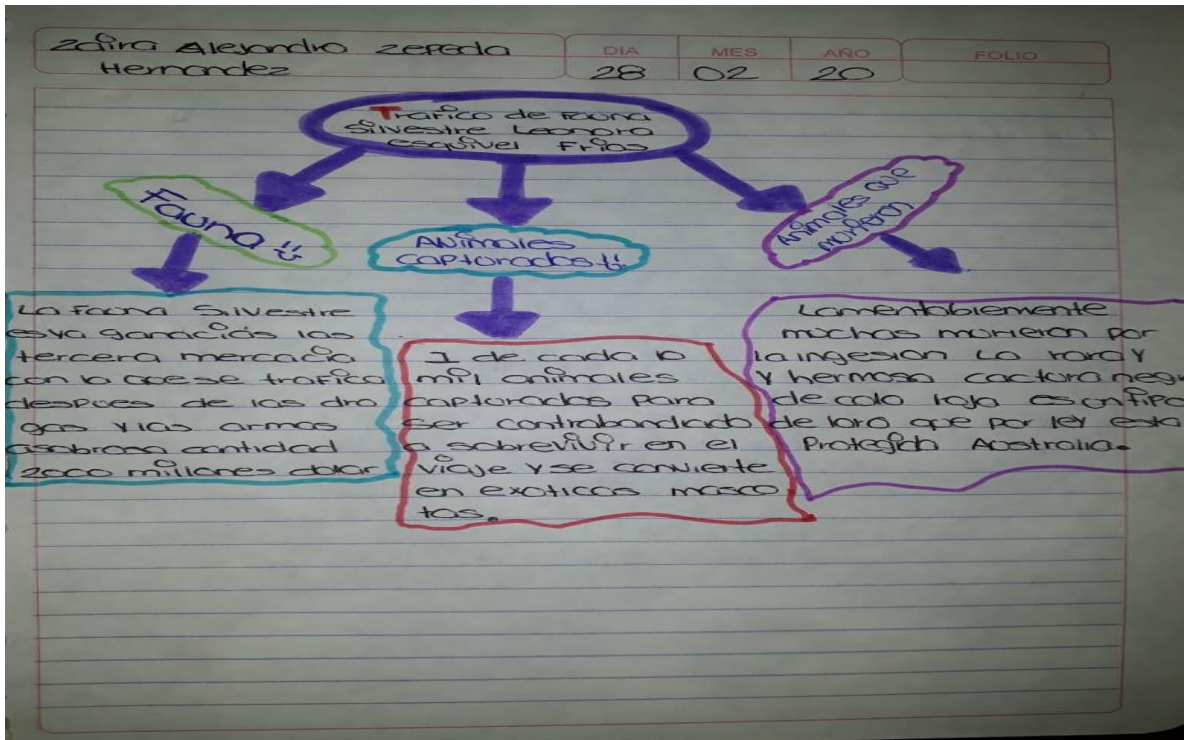 Zaira Alejandra Zepeda
Hernandez
DIA
MES
AÑO
FOLIO
28
02
20
Trafico de Fauna
Silvestre Leonora
esquivel Frias
Fauna
Animales
capturados
Animales que
murieron
La Fauna Silvestre
es ya ganacias las
tercera mercacia
con la que se trafica
despues de las dro
gas y las armas
asobrosa cantidad
2000 millones dolar
1 de cada 10
mil animales
capturados para
ser contrabandiado
a sobrevivir en el
viaje y se convierte
en exoticas masco
tas.
Lamentablemente
muchas murieron por
la ingesion La rara y
y hermosa cactura negr
de cola roja es un tipo
de loro que por ley esta
Protegido Australia.